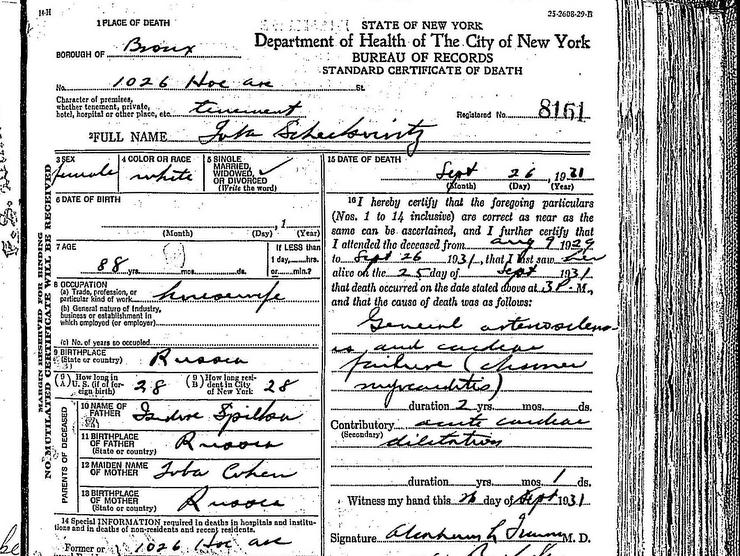 H-H
25-2608-29-B
1 PLACE OF DEATH
STATE OF NEW YORK
Department of Health of The City of New York
BUREAU OF RECORDS
STANDARD CERTIFICATE OF DEATH
BOROUGH OF Bronx
No. 1026 Hoe ave St.
Character of premises,
whether tenement, private,
hotel, hospital or other place, etc. tenement
Registered No. 8161
2 FULL NAME
3 SEX female
4 COLOR OR RACE white
5 SINGLE
MARRIED,
WIDOWED, ✓
OR DIVORCED
(Write the word)
6 DATE OF BIRTH
, 1
(Month) (Day) (Year)
7 AGE
88 yrs. mos. ds.
If LESS than
1 day, hrs.
or min.?
8 OCCUPATION
(a) Trade, profession, or
particular kind of work housewife
(b) General nature of Industry,
business or establishment in
which employed (or employer)
(c) No. of years so occupied
9 BIRTHPLACE
(State or country) Russia
(9 A) How long in
U. S. (if of for-
eign birth) 28
(9 B) How long res-
ident in City
of New York 28
PARENTS OF DECEASED
10 NAME OF
FATHER Isidore
11 BIRTHPLACE
OF FATHER
(State or country) Russia
12 MAIDEN NAME
OF MOTHER Toba Cohen
13 BIRTHPLACE
OF MOTHER
(State or country) Russia
14 Special INFORMATION required in deaths in hospitals and institu-
tions and in deaths of non-residents and recent residents.
Former or 1026 Hoe ave
15 DATE OF DEATH
Sept 26, 1931
(Month) (Day) (Year)
16 I hereby certify that the foregoing particulars
(Nos. 1 to 14 inclusive) are correct as near as the
same can be ascertained, and I further certify that
I attended the deceased from Aug 9 1929
to Sept 26 1931, that I last saw her
alive on the 25 day of Sept 1931,
that death occurred on the date stated above at 3 P. M.,
and that the cause of death was as follows:
General arteriosclero-
sis and cardiac
failure (chronic
myocarditis)
duration 2 yrs. mos. ds.
Contributory acute cardiac
(Secondary) dilatation
duration yrs. mos. 1 ds.
Witness my hand this 26 day of Sept 1931
Signature M. D.
MARGIN RESERVED FOR BINDING
NO MUTILATED CERTIFICATE WILL BE RECEIVED